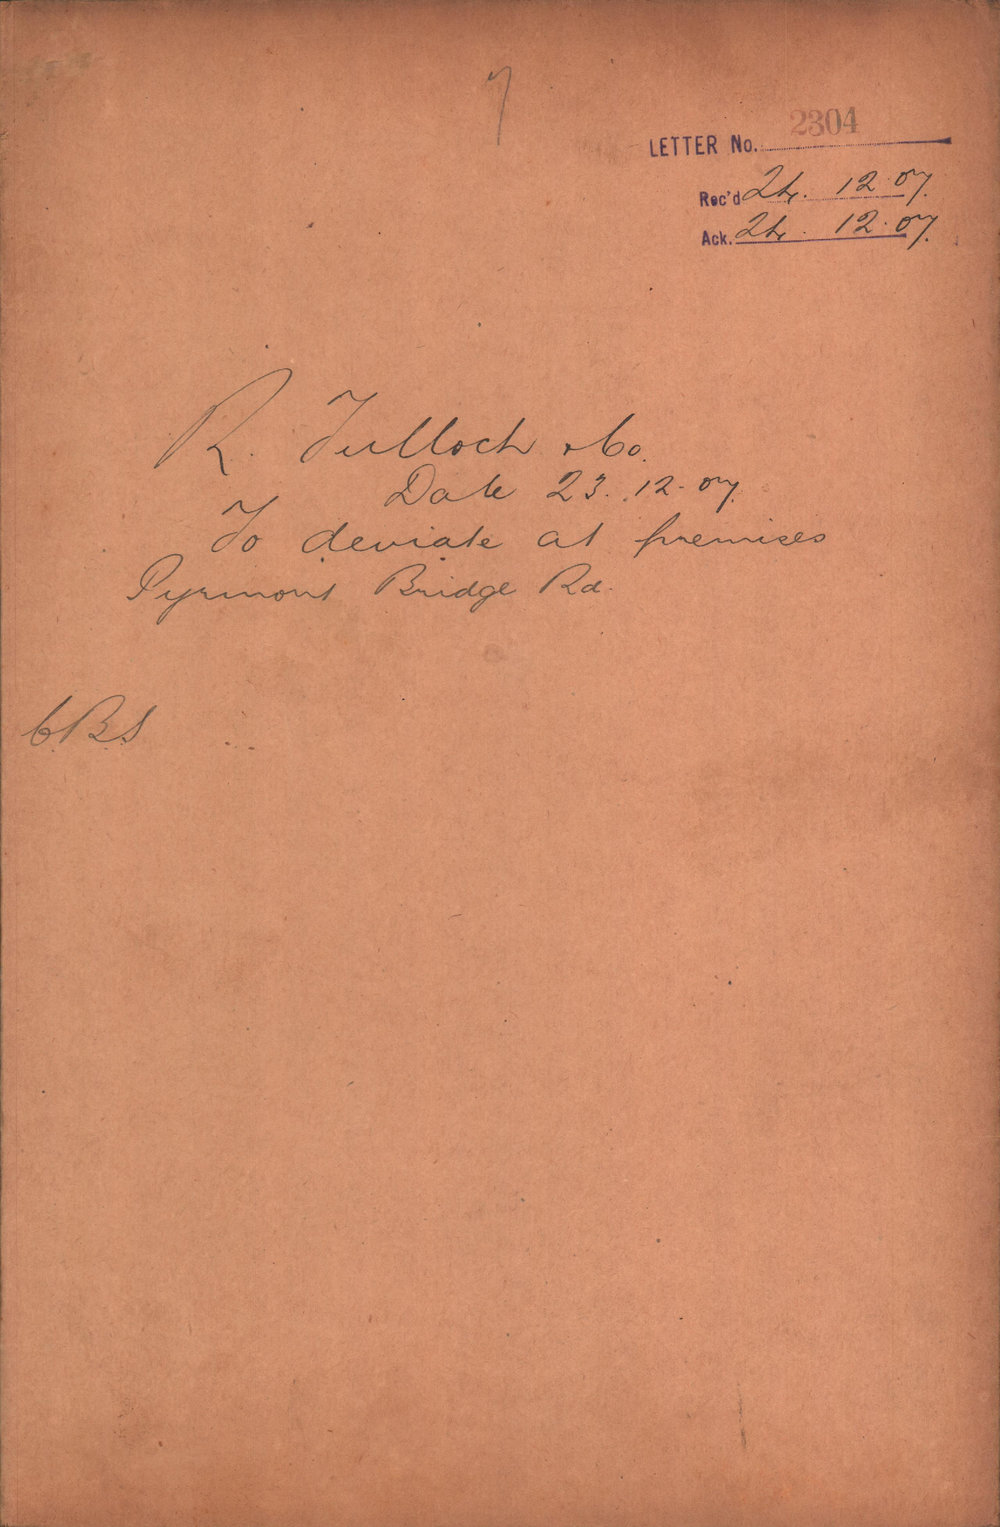 7
LETTER No. 2304
Rec'd 24. 12.07.
Ack. 24. 12.07.
R. Tulloch & Co.
Date 23.12.07.
To deviate at premises
Pyrmont Bridge Rd.
C.B.S